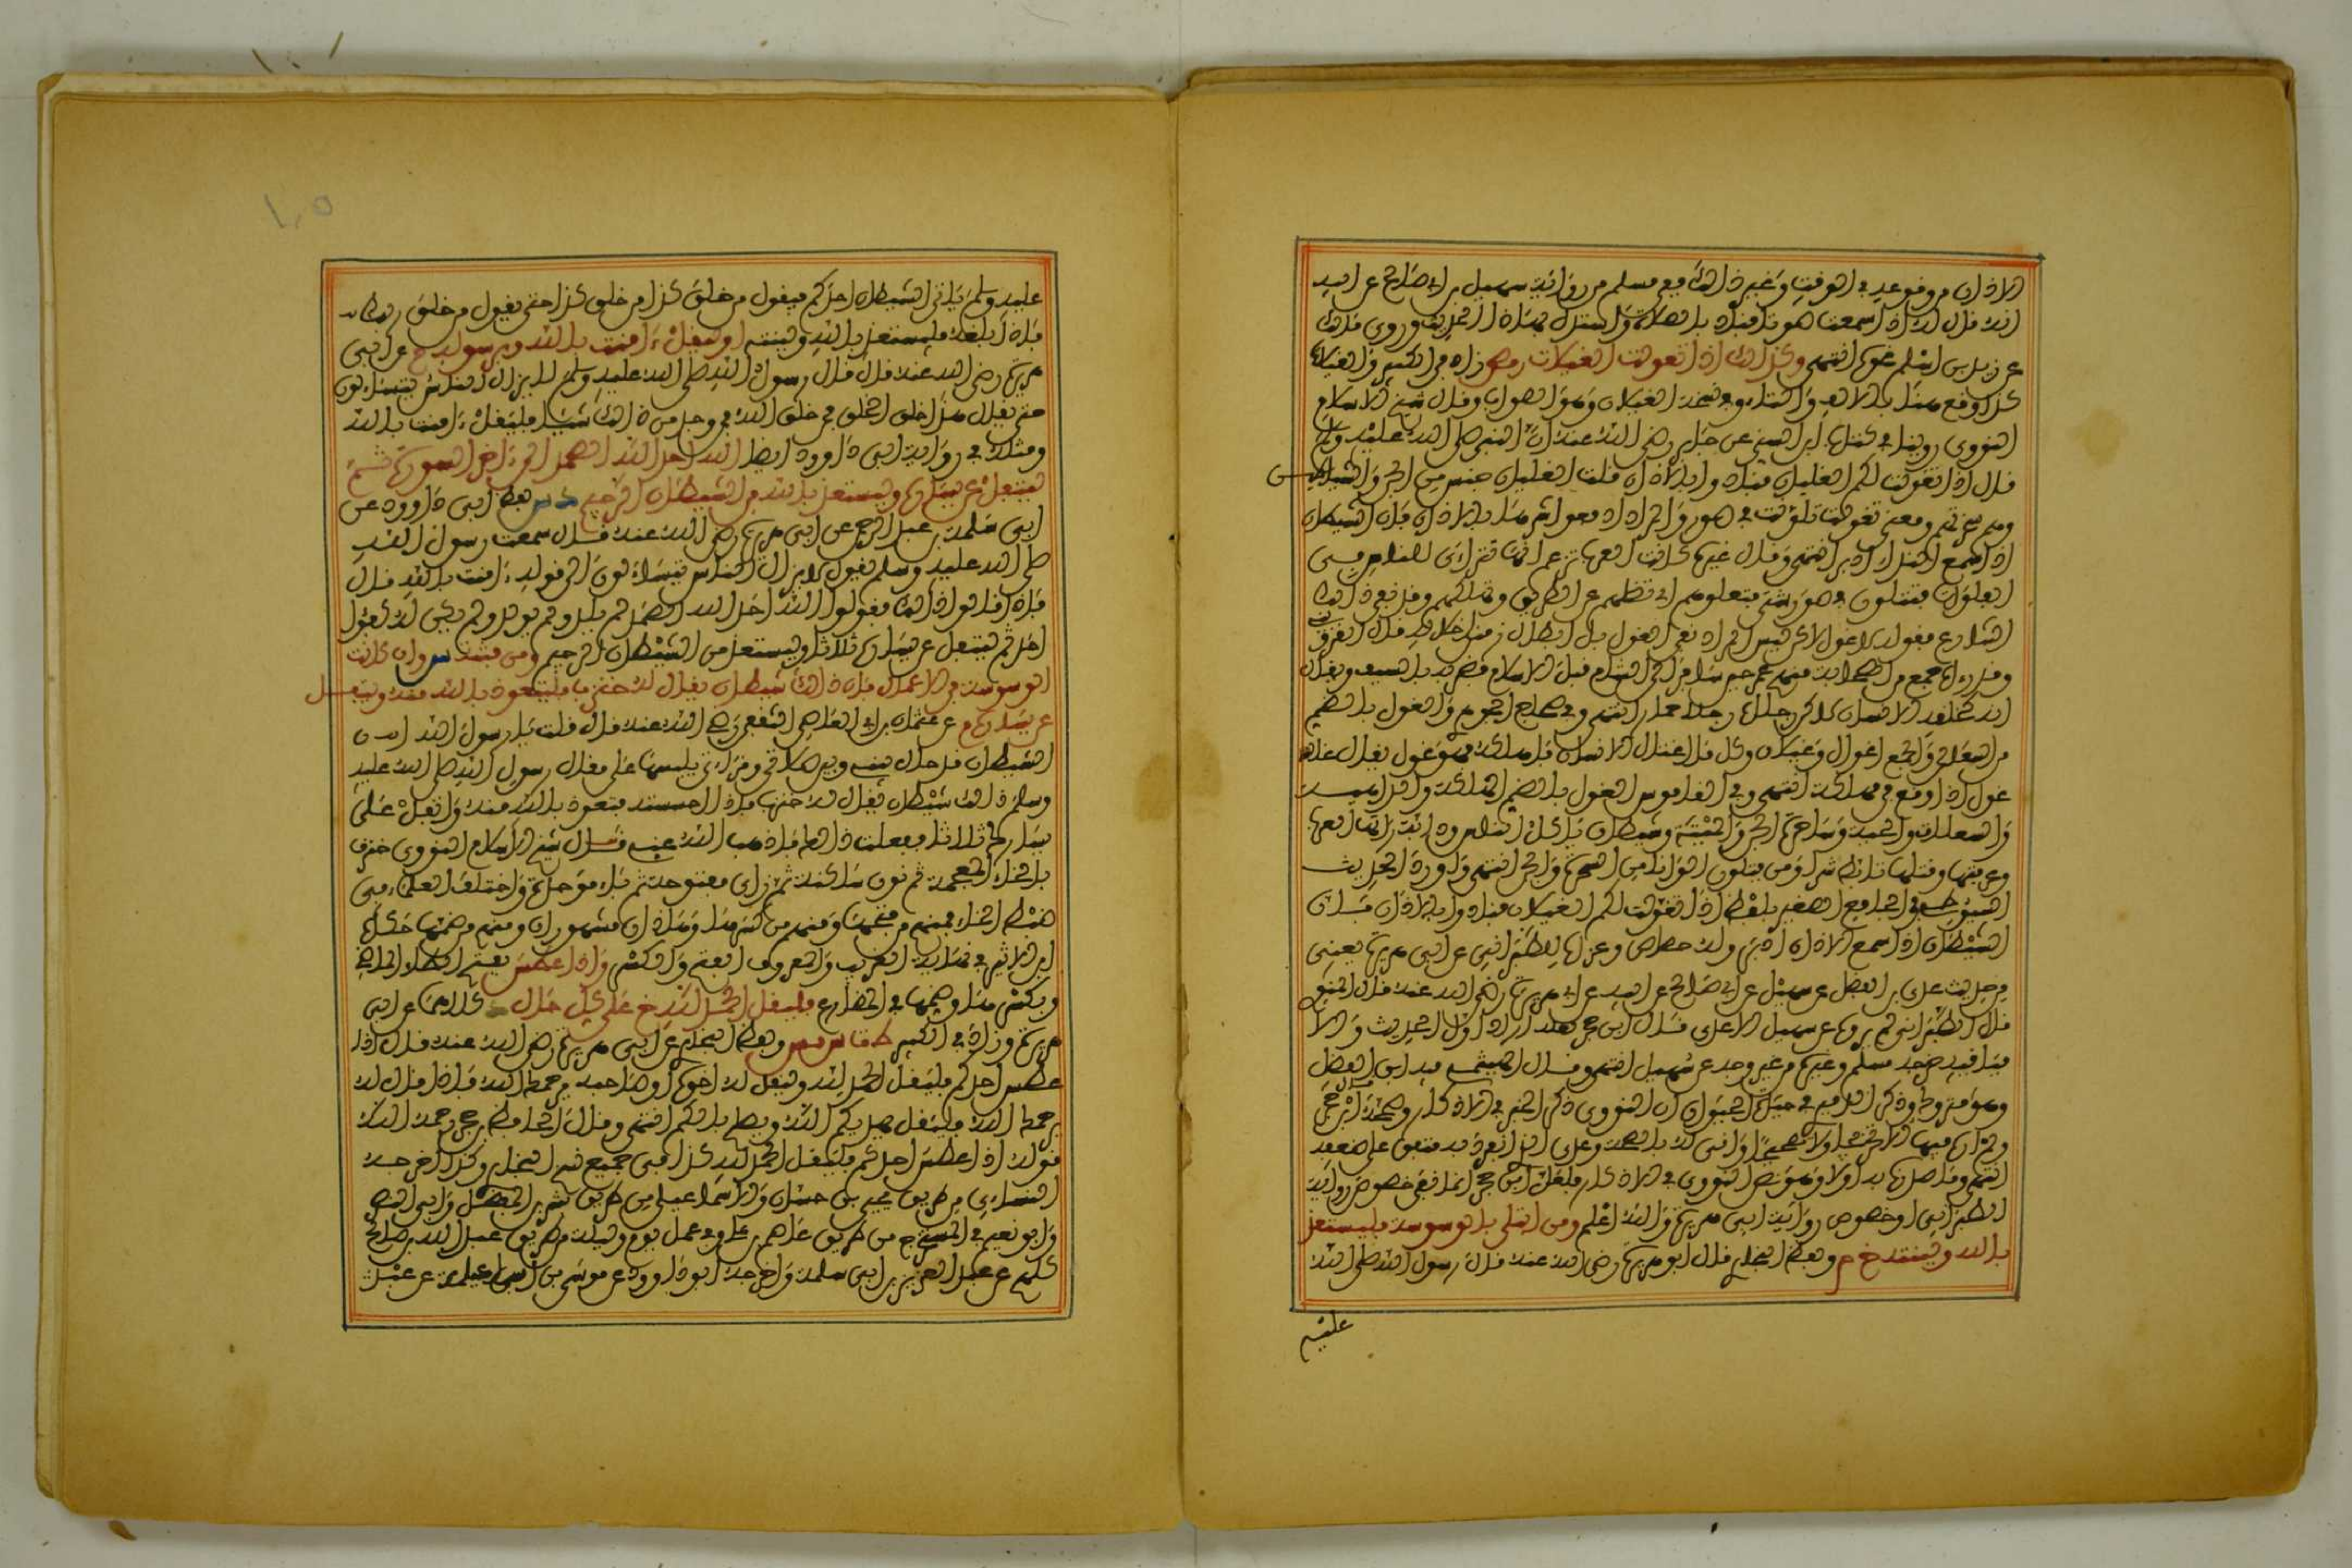 الاذان من وقوعه في الوقت وغير ذالك ففي مسلم من رواية سهيل بن ابي صالح عن ابيه
انه قال له اذا سمعت صوتا فناد بالصلاة واستدل بهذا الحديث وروى مالك
عن زيد بن اسلم نحوه انتهى وكذالك اذا تغولت الغيلان مص زاد في الكبير والغيلان
كذا وقع هنا بالالف والتاء وفي نسخة الغيلان وهو الصواب وقال شيخ الاسلام
النووي روينا في كتاب ابن السني عن جابر رضي الله عنه ان النبي صلى الله عليه وسلم
قال اذا تغولت لكم الغيلان فنادوا بالاذان قلت الغيلان جنس من الجن والشياطين
وهم سحرتهم ومعنى تغولت تلونت في صور والمراد ادفعوا شرها بالاذان فان الشيطان
اذا سمع النداء ادبر انتهى وقال غيره كانت العرب تزعم انها تتراءى للناس في
الفلوات فتتلون في صور شتى فتضلهم عن الطريق وتهلكهم وقد نفى ذالك
الشارع بقوله لا غول لاكن ليس المراد نفي الغول بل ابطال زعم اضلاله قال القزويني
وقد رءاه جمع من الصحابة منهم عمر حين سافر الى الشام قبل الاسلام فضربه بالسيف ويقال
انه كخلقة الانسان لاكن رجلاه رجلا حمار انتهى وفي صحاح الجوهري والغول بالضم
من السعالي والجمع اغوال وغيلان وكل ما اغتال الانسان فاهلكه فهو غول يقال غالته
غول اذا وقع في مهلكة انتهى وفي القاموس الغول بالضم الهلكة والداهية
والسعلاة والحية وساحرة الجن والمنية وشيطان ياكل الناس ودابة رأتها العرب
وعرفتها وقتلها تابط شرا ومن يتلون الوانا من السحرة والجن انتهى واورد الحديث
السيوطي في الجامع الصغير بلفظ اذا تغولت لكم الغيلان فنادوا بالاذان فان
الشيطان اذا سمع الاذان ادبر وله حصاص وعزاه للطبراني عن ابي هريرة يعني
من حديث عدي بن الفضل عن سهيل عن ابي صالح عن ابيه عن ابي هريرة رضي الله عنه قال الحديث
قال الطبراني لم يروه عن سهيل الا عدي قال ابن حجر
فباقيه خرجه مسلم وغيره من غير وجه عن سهيل انتهى وقال الهيثمي فيه عدي بن الفضل
وهو متروك وذكر الدميري في حياة الحيوان ان النووي ذكر الخبر في الاذكار وصححه ابن حجر
ولم اره فيها لا تصحيحا ولا تضعيفا وانى له بالصحة وعدي الذي انفرد به متفق على ضعفه
انتهى وما صدره به اولا وهو نص النووي في الاذكار فلعل ابن حجر انما نفى خصوص رواية
الطبراني او خصوص رواية ابي هريرة والله اعلم ومن ابتلي بالوسوسة فليستعذ
بالله ولينته خ م ولفظ البخاري قال ابو هريرة رضي الله عنه قال رسول الله صلى الله
عليه
عليه وسلم ياتي الشيطان احدكم فيقول من خلق كذا من خلق كذا حتى يقول من خلق ربك
فاذا بلغه فليستعذ بالله ولينته او ليقل ءامنت بالله وبرسوله م عن ابي
هريرة رضي الله عنه قال قال رسول الله صلى الله عليه وسلم لا يزال الناس يتساءلون
حتى يقال هذا خلق الله الخلق فمن خلق الله فمن وجد من ذالك شيئا فليقل ءامنت بالله
ومثله في رواية ابي داوود ايضا الله احد الله الصمد الى ءاخر السورة ثم
ليتفل عن يساره وليستعذ بالله من الشيطان الرجيم د س لفظ ابي داوود عن
ابي سلمة بن عبد الرحمن عن ابي هريرة رضي الله عنه قال سمعت رسول الله
صلى الله عليه وسلم يقول لا يزال الناس يتساءلون الى قوله ءامنت بالله قال
فاذا قالوا ذالك فقولوا الله احد الله الصمد لم يلد ولم يولد ولم يكن له كفؤا
احد ثم ليتفل عن يساره ثلاثا وليستعذ من الشيطان الرجيم ومن فتنته س وان كانت
الوسوسة في الاعمال فان ذالك شيطان يقال له خنزب فليتعوذ بالله منه وليتفل
عن يساره م عن عثمان بن ابي العاص الثقفي رضي الله عنه قال قلت يا رسول الله ان
الشيطان قد حال بيني وبين صلاتي وقراءتي يلبسها علي فقال رسول الله صلى الله عليه
وسلم ذالك شيطان يقال له خنزب فاذا احسسته فتعوذ بالله منه واتفل على
يسارك ثلاثا ففعلت ذالك فاذهب الله عني قال شيخ الاسلام النووي خنزب
بالخاء المعجمة ثم نون ساكنة ثم زاي مفتوحة ثم باء موحدة واختلف العلماء في
ضبط الخاء فمنهم من فتحها ومنهم من كسرها وهاذان مشهوران ومنهم من ضمها حكاه
ابن الاثير في نهاية الغريب والمعروف الفتح والكسر واذا عطس بفتح الطاء في الماضي
وبكسرها وضمها في المضارع فليقل الحمد لله خ على كل حال د كلاهما عن ابي
هريرة وزاد في الكبير ولفظ البخاري عن ابي هريرة رضي الله عنه قال اذا
عطس احدكم فليقل الحمد لله وليقل له اخوه او صاحبه يرحمك الله فاذا قال له
يرحمك الله فليقل يهديكم الله ويصلح بالكم انتهى وقال الحافظ ابن حجر رحمه الله
قوله اذا عطس احدكم فليقل الحمد لله كذا في جميع نسخ البخاري وكذا اخرجه
النساءي من طريق يحيى بن حسان والاسماعيلي من طريق بشر بن المفضل وابي النضر
وابو نعيم في المستخرج من طريق عاصم بن علي وفي عمل يوم وليلة من طريق عبد الله بن صالح
كلهم عن عبد العزيز بن ابي سلمة واخرجه ابو داوود عن موسى بن اسماعيل عن عبد